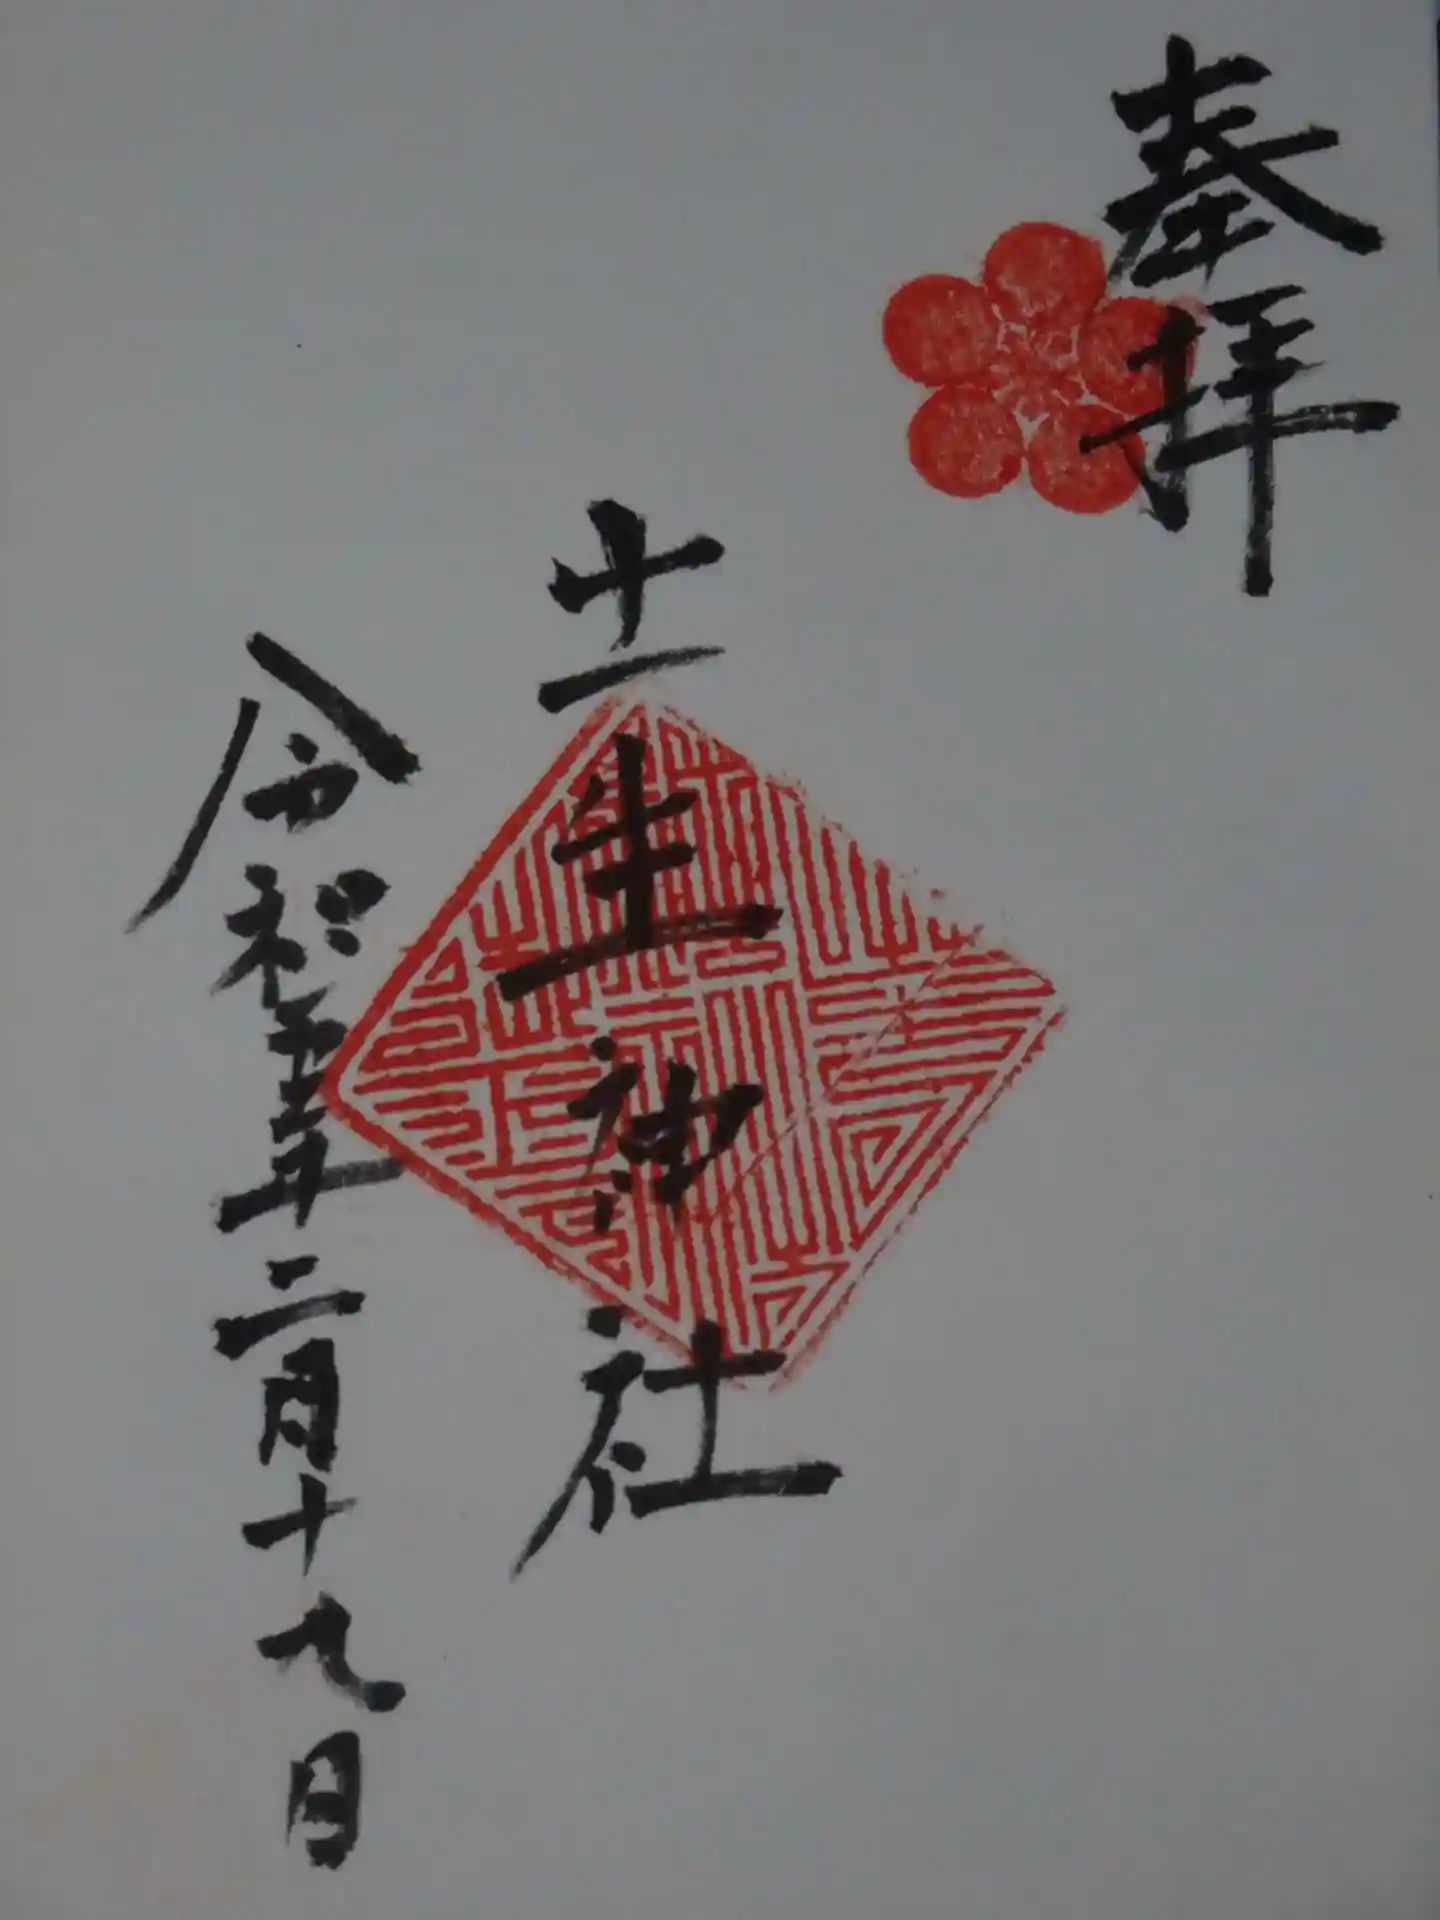 奉拝
土生神社
令和五年二月十九日